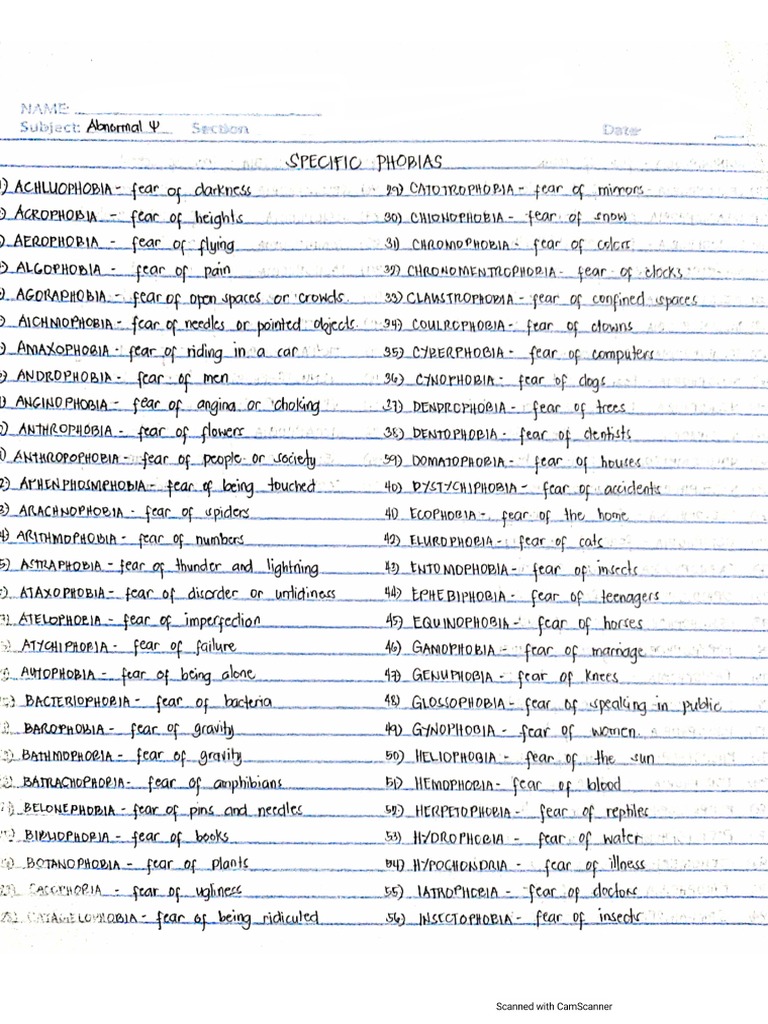 NAME:
Subject: Abnormal Ψ Section Date
SPECIFIC PHOBIAS
1) ACHLUOPHOBIA - fear of darkness
2) ACROPHOBIA - fear of heights
3) AEROPHOBIA - fear of flying
4) ALGOPHOBIA - fear of pain
5) AGORAPHOBIA - fear of open spaces or crowds
6) AICHMOPHOBIA - fear of needles or pointed objects
7) AMAXOPHOBIA - fear of riding in a car
8) ANDROPHOBIA - fear of men
9) ANGINOPHOBIA - fear of angina or choking
10) ANTHROPHOBIA - fear of flowers
11) ANTHROPOPHOBIA - fear of people or society
12) APHENPHOSMPHOBIA - fear of being touched
13) ARACHNOPHOBIA - fear of spiders
14) ARITHMOPHOBIA - fear of numbers
15) ASTRAPHOBIA - fear of thunder and lightning
16) ATAXOPHOBIA - fear of disorder or untidiness
17) ATELOPHOBIA - fear of imperfection
18) ATYCHIPHOBIA - fear of failure
19) AUTOPHOBIA - fear of being alone
20) BACTERIOPHOBIA - fear of bacteria
21) BAROPHOBIA - fear of gravity
22) BATHMOPHOBIA - fear of gravity
23) BATRACHOPHOBIA - fear of amphibians
24) BELONEPHOBIA - fear of pins and needles
25) BIBLIOPHOBIA - fear of books
26) BOTANOPHOBIA - fear of plants
27) CACOPHOBIA - fear of ugliness
28) CATAGELOPHOBIA - fear of being ridiculed
29) CATOTROPHOBIA - fear of mirrors
30) CHIONOPHOBIA - fear of snow
31) CHROMOPHOBIA - fear of colors
32) CHRONOMENTROPHOBIA - fear of clocks
33) CLAWSTROPHOBIA - fear of confined spaces
34) COULROPHOBIA - fear of clowns
35) CYBERPHOBIA - fear of computers
36) CYNOPHOBIA - fear of dogs
37) DENDROPHOBIA - fear of trees
38) DENTOPHOBIA - fear of dentists
39) DOMATOPHOBIA - fear of houses
40) DYSTYCHIPHOBIA - fear of accidents
41) ECOPHOBIA - fear of the home
42) ELUROPHOBIA - fear of cats
43) ENTOMOPHOBIA - fear of insects
44) EPHEBIPHOBIA - fear of teenagers
45) EQUINOPHOBIA - fear of horses
46) GAMOPHOBIA - fear of marriage
47) GENUPHOBIA - fear of knees
48) GLOSSOPHOBIA - fear of speaking in public
49) GYNOPHOBIA - fear of women.
50) HELIOPHOBIA - fear of the sun
51) HEMOPHOBIA - fear of blood
52) HERPETOPHOBIA - fear of reptiles
53) HYDROPHOBIA - fear of water
54) HYPOCHONDRIA - fear of illness
55) IATROPHOBIA - fear of doctors
56) INSECTOPHOBIA - fear of insects
Scanned with CamScanner